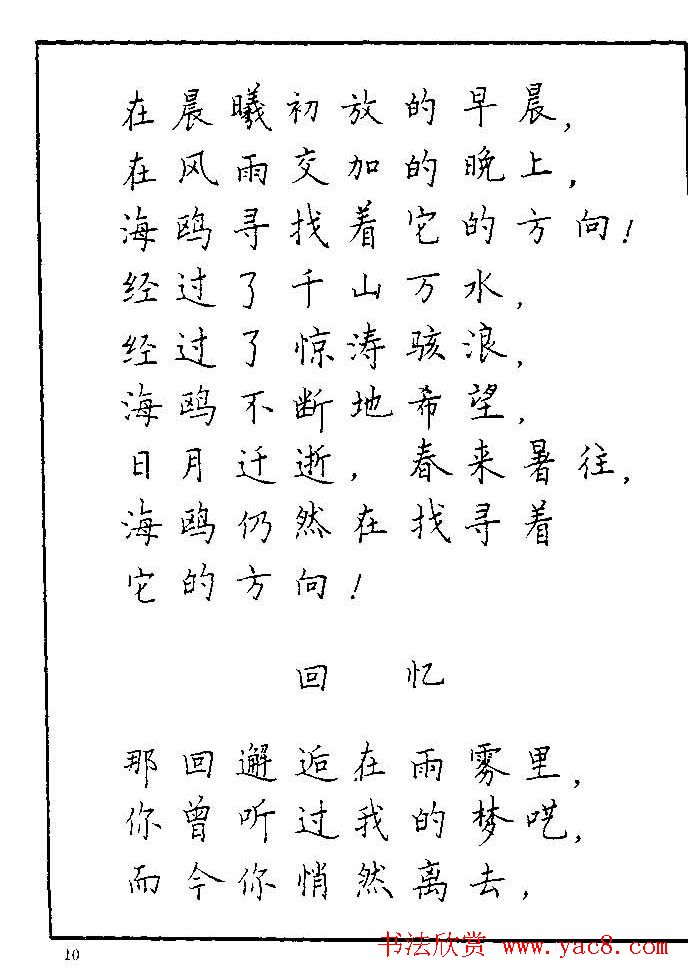 在晨曦初放的早晨，
在风雨交加的晚上，
海鸥寻找着它的方向！
经过了千山万水，
经过了惊涛骇浪，
海鸥不断地希望，
日月迁逝，春来暑往，
海鸥仍然在找寻着
它的方向！
回忆
那回邂逅在雨雾里，
你曾听过我的梦呓，
而今你悄然离去，
10
书法欣赏 www.yac8.com